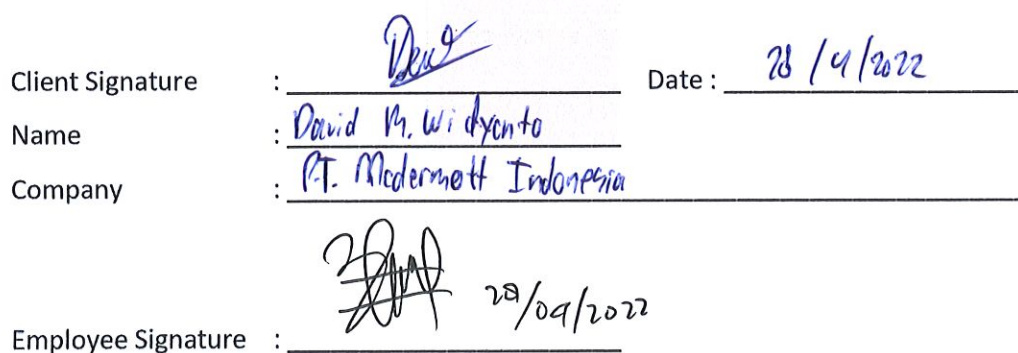 Client Signature : Date : 28/4/2022
Name : David M. Widyanto
Company : PT. Mcdermott Indonesia
28/04/2022
Employee Signature :